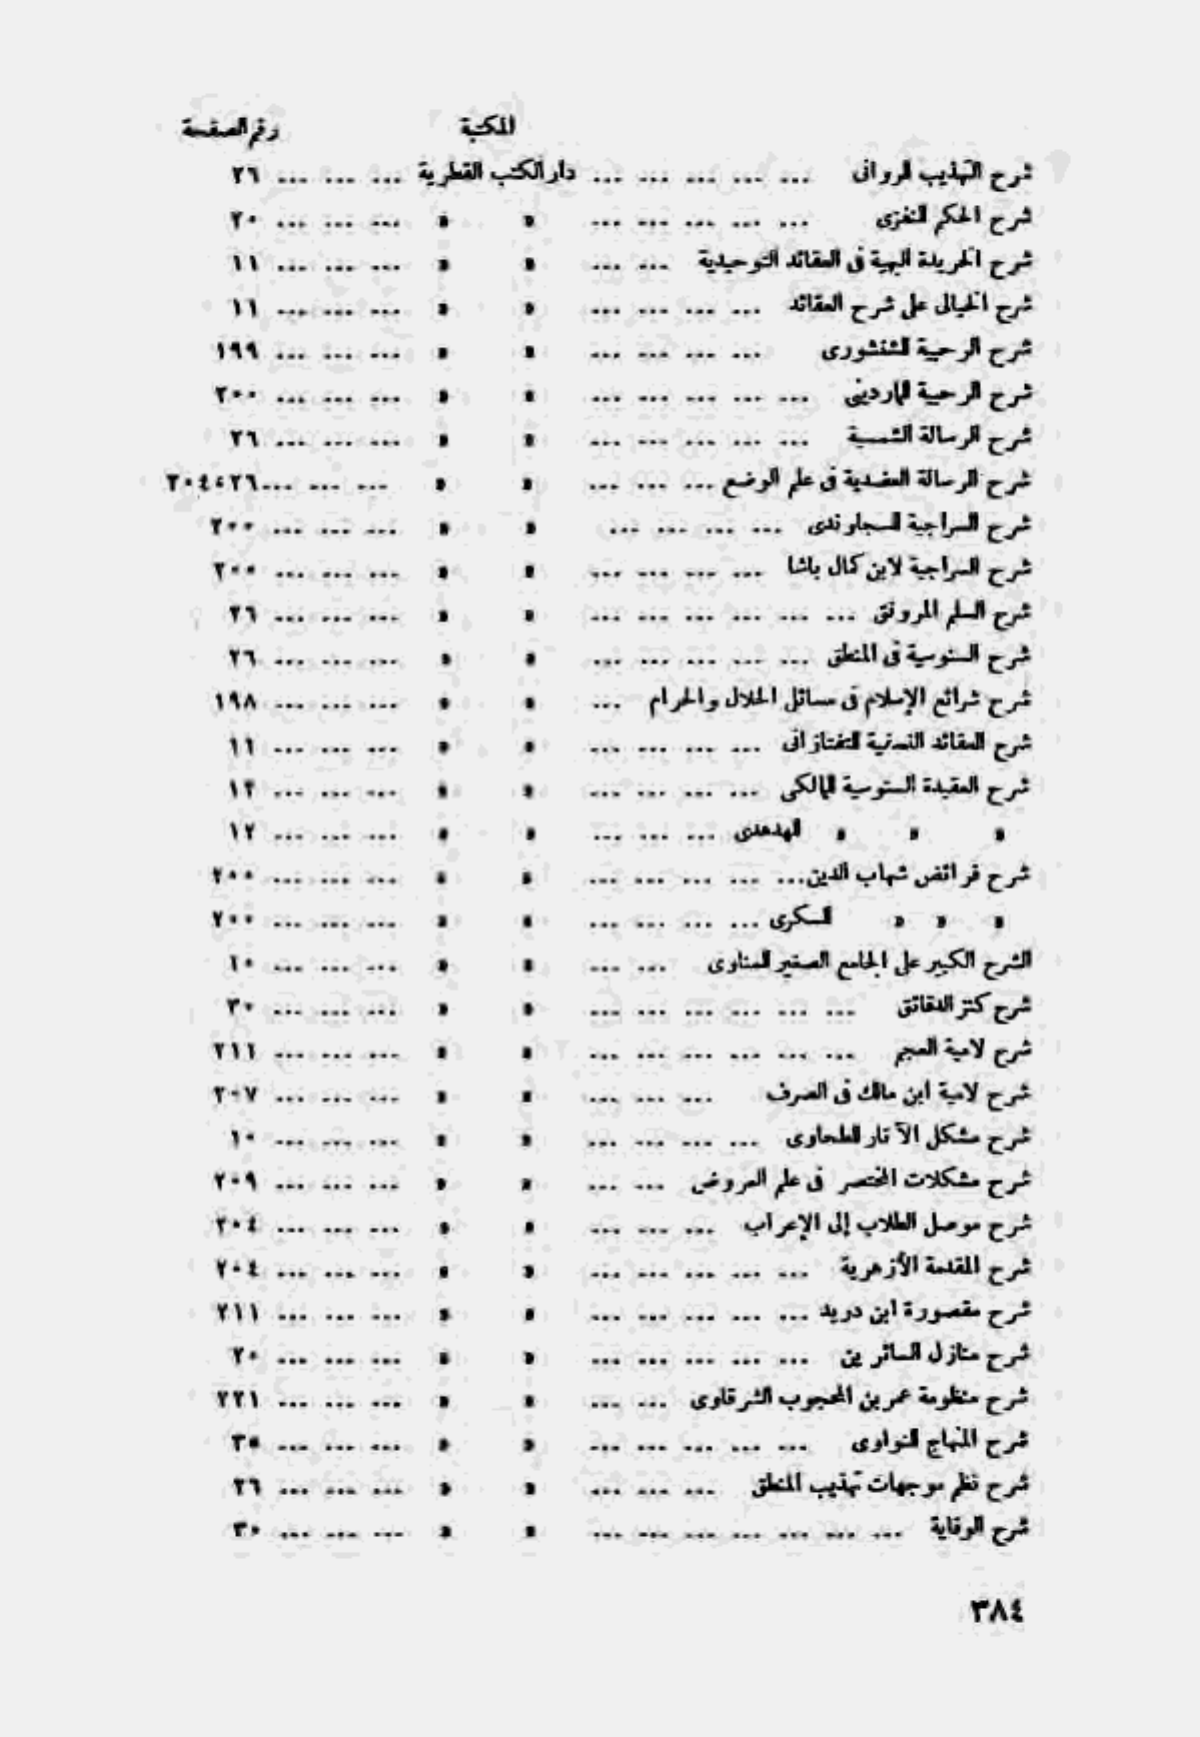 المكتبة رقم الصفحة
شرح التهذيب للروانى ... ... ... ... ... دار الكتب القطرية ... ... ... ٢٦
شرح الحكم للنفزى ... ... ... ... ... » » ... ... ... ٢٠
شرح الخريدة البهية فى العقائد التوحيدية ... ... » » ... ... ... ١١
شرح الخيالى على شرح العقائد ... ... ... ... » » ... ... ... ١١
شرح الرحبية للشنشورى ... ... ... ... » » ... ... ... ١٩٩
شرح الرحبية للماردينى ... ... ... ... ... » » ... ... ... ٢٠٠
شرح الرسالة الشمسية ... ... ... ... ... » » ... ... ... ٢٦
شرح الرسالة العضدية فى علم الوضع ... ... ... » » ... ... ... ٢٠٤،٢٦
شرح السراجية للسجاوندى ... ... ... ... » » ... ... ... ٢٠٠
شرح السراجية لابن كمال باشا ... ... ... ... » » ... ... ... ٢٠٠
شرح السلم المرونق ... ... ... ... ... ... » » ... ... ... ٢٦
شرح السنوسية فى المنطق ... ... ... ... ... » » ... ... ... ٢٦
شرح شرائع الإسلام فى مسائل الحلال والحرام ... » » ... ... ... ١٩٨
شرح العقائد النسفية للتفتازانى ... ... ... ... » » ... ... ... ١١
شرح العقيدة السنوسية للمالكى ... ... ... ... » » ... ... ... ١٢
» » » الهدهدى ... ... ... » » ... ... ... ١٢
شرح فرائض شهاب الدين ... ... ... ... ... » » ... ... ... ٢٠٠
» » » السكرى ... ... ... ... » » ... ... ... ٢٠٠
الشرح الكبير على الجامع الصغير للمناوى ... ... » » ... ... ... ١٠
شرح كنز الدقائق ... ... ... ... ... ... » » ... ... ... ٣٠
شرح لامية العجم ... ... ... ... ... ... » » ... ... ... ٢١١
شرح لامية ابن مالك فى الصرف ... ... ... » » ... ... ... ٢٠٧
شرح مشكل الآثار للطحاوى ... ... ... ... » » ... ... ... ١٠
شرح مشكلات المختصر فى علم العروض ... ... » » ... ... ... ٢٠٩
شرح موصل الطلاب إلى الإعراب ... ... ... » » ... ... ... ٢٠٤
شرح المقدمة الأزهرية ... ... ... ... ... » » ... ... ... ٢٠٤
شرح مقصورة ابن دريد ... ... ... ... ... » » ... ... ... ٢١١
شرح منازل السائرين ... ... ... ... ... » » ... ... ... ٢٠
شرح منظومة عمر بن المحجوب الشرقاوى ... ... » » ... ... ... ٢٢١
شرح المنهاج للنواوى ... ... ... ... ... » » ... ... ... ٣٥
شرح نظم موجهات تهذيب المنطق ... ... ... » » ... ... ... ٢٦
شرح الوقاية ... ... ... ... ... ... ... » » ... ... ... ٣٠
٣٨٤